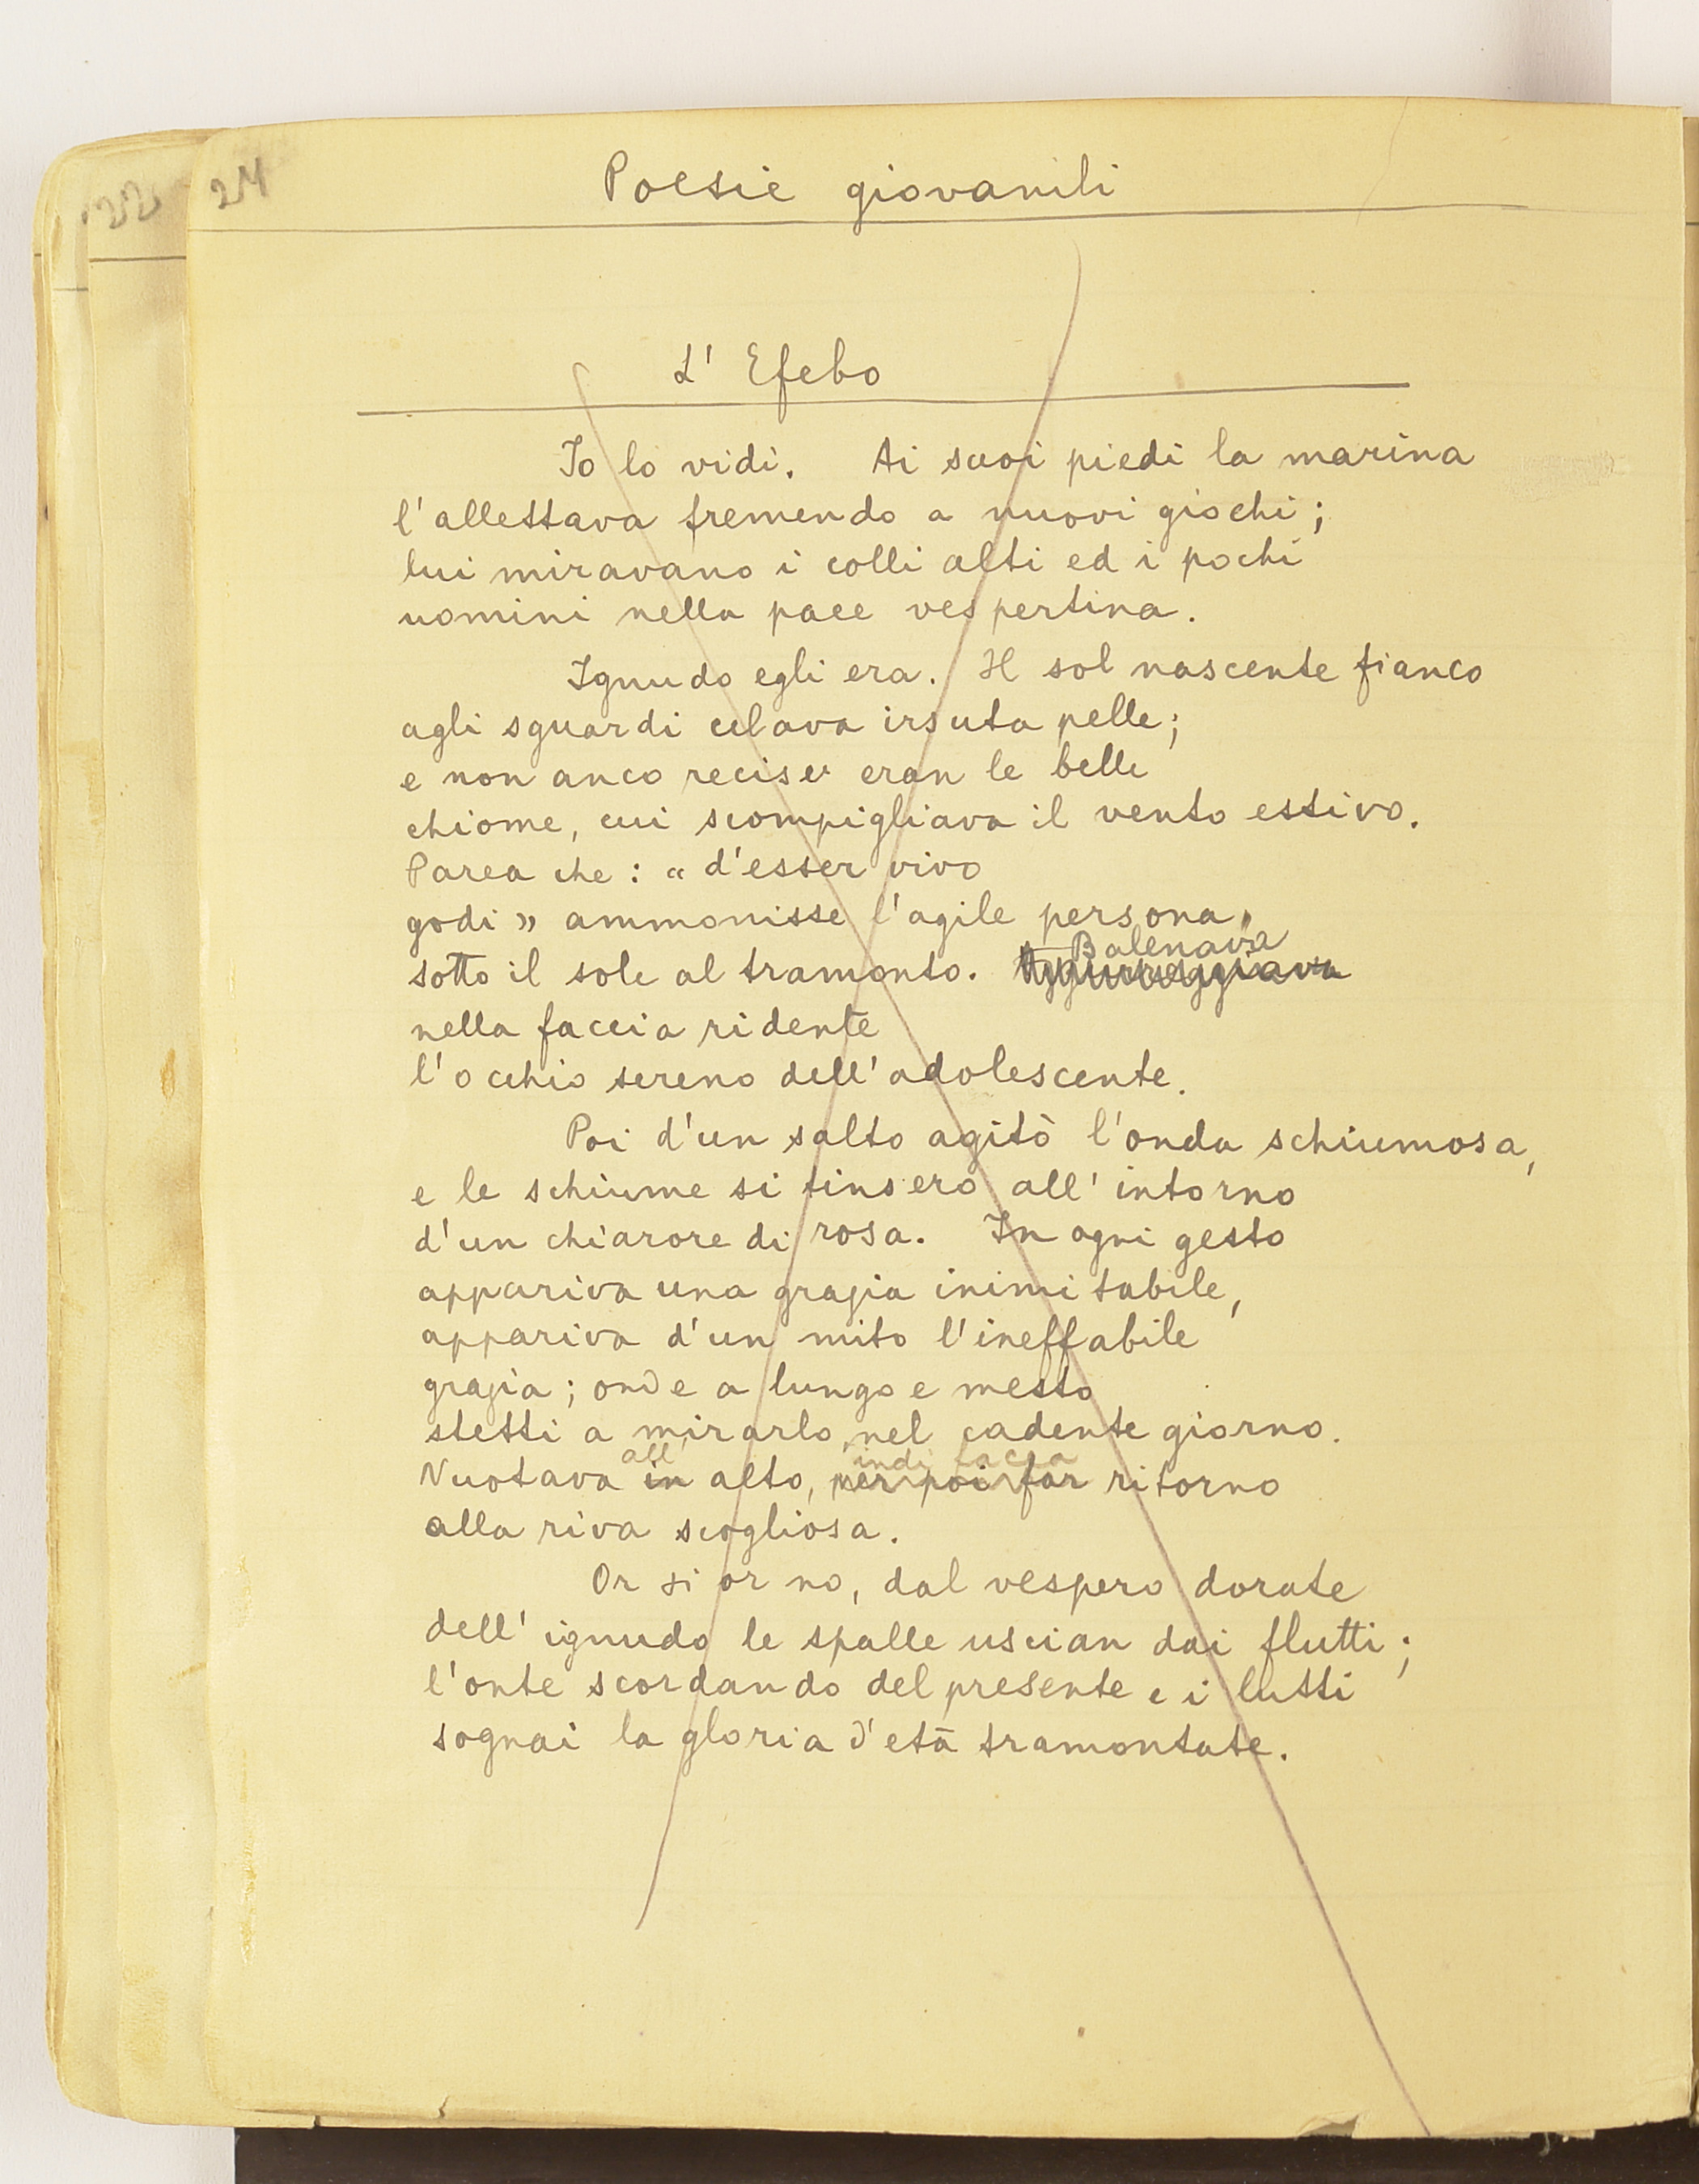 22 24
Poesie giovanili
L' Efebo
Io lo vidi. Ai suoi piedi la marina
l'allettava fremendo a nuovi giochi;
lui miravano i colli alti ed i pochi
uomini nella pace vespertina.
Ignudo egli era. Il sol nascente fianco
agli sguardi celava irsuta pelle;
e non anco recise eran le belle
chiome, cui scompigliava il vento estivo.
Parea che: « d'esser vivo
godi » ammonisse l'agile persona,
Balenava
sotto il sole al tramonto.
nella faccia ridente
l'occhio sereno dell'adolescente.
Poi d'un salto agitò l'onda schiumosa,
e le schiume si tinsero all'intorno
d'un chiarore di rosa. In ogni gesto
appariva una grazia inimitabile,
appariva d'un mito l'ineffabile
grazia; onde a lungo e mesto
stetti a mirarlo, nel cadente giorno.
all' indi facea
Nuotava in alto, per poi far ritorno
alla riva scogliosa.
Or sì or no, dal vespero dorate
dell'ignudo le spalle uscian dai flutti;
l'onte scordando del presente e i lutti
sognai la gloria d'età tramontate.